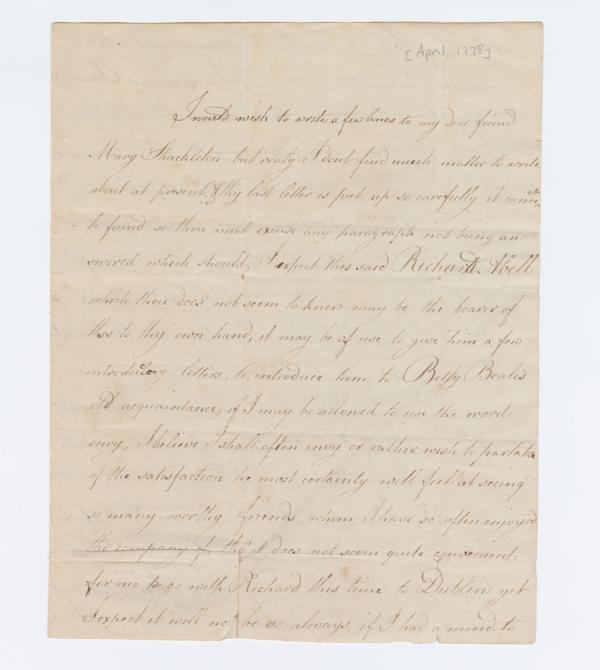 [April, 1778]
I would wish to write a few lines to my dear friend
Mary Shackleton but realy I dont find much matter to write
about at present, & thy last letter is put up so carefully it cannot
be found so thou must excuse any paragraph not being an
swered which should, I expect this said Richard Abell
which thou does not seem to know may be the bearer of
this to thy own hand, it may be of use to give him a few
introductory letters, to introduce him to Betsy Beale's
old acquaintance, if I may be allowed to use the word
envy, I believe I shall often envy or rather wish to partake
of the satisfaction he most certainly will feel at seeing
so many worthy friends whom I have so often enjoyed
the company of tho' it does not seem quite convenient
for me to go with Richard this time to Dublin yet
I expect it will not be so always, if I had a mind to